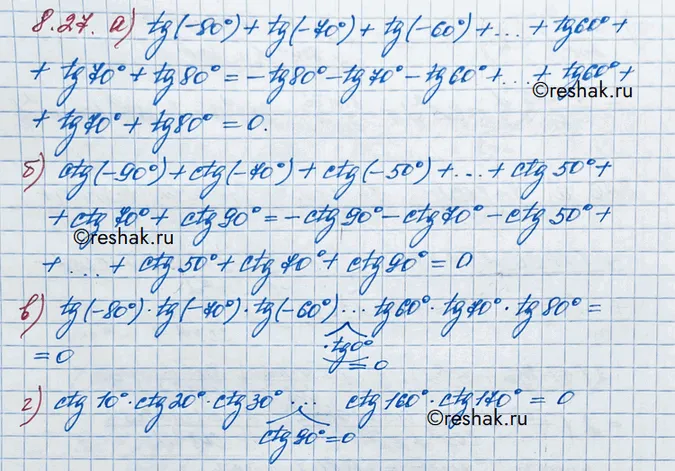 8.27. а) tg(-80°) + tg(-70°) + tg(-60°) + ... + tg60° +
+ tg70° + tg80° = -tg80° - tg70° - tg60° + ... + tg60° +
©reshak.ru
+ tg70° + tg80° = 0.
б) ctg(-90°) + ctg(-70°) + ctg(-50°) + ... + ctg50° +
+ ctg70° + ctg90° = -ctg90° - ctg70° - ctg50° +
©reshak.ru
+ ... + ctg50° + ctg70° + ctg90° = 0
в) tg(-80°)·tg(-70°)·tg(-60°) ... tg60°·tg70°·tg80° =
= 0
·tg0°
= 0
г) ctg10°·ctg20°·ctg30° · ... ctg160°·ctg170° = 0
©reshak.ru
ctg90° = 0